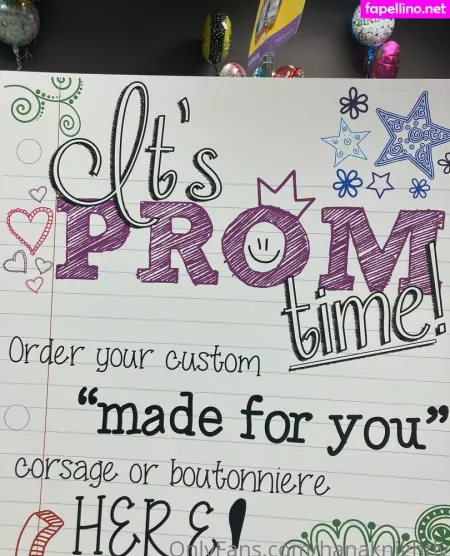 fapellino.net
It's
PROM
time!
Order your custom
"made for you"
corsage or boutonniere
HERE!